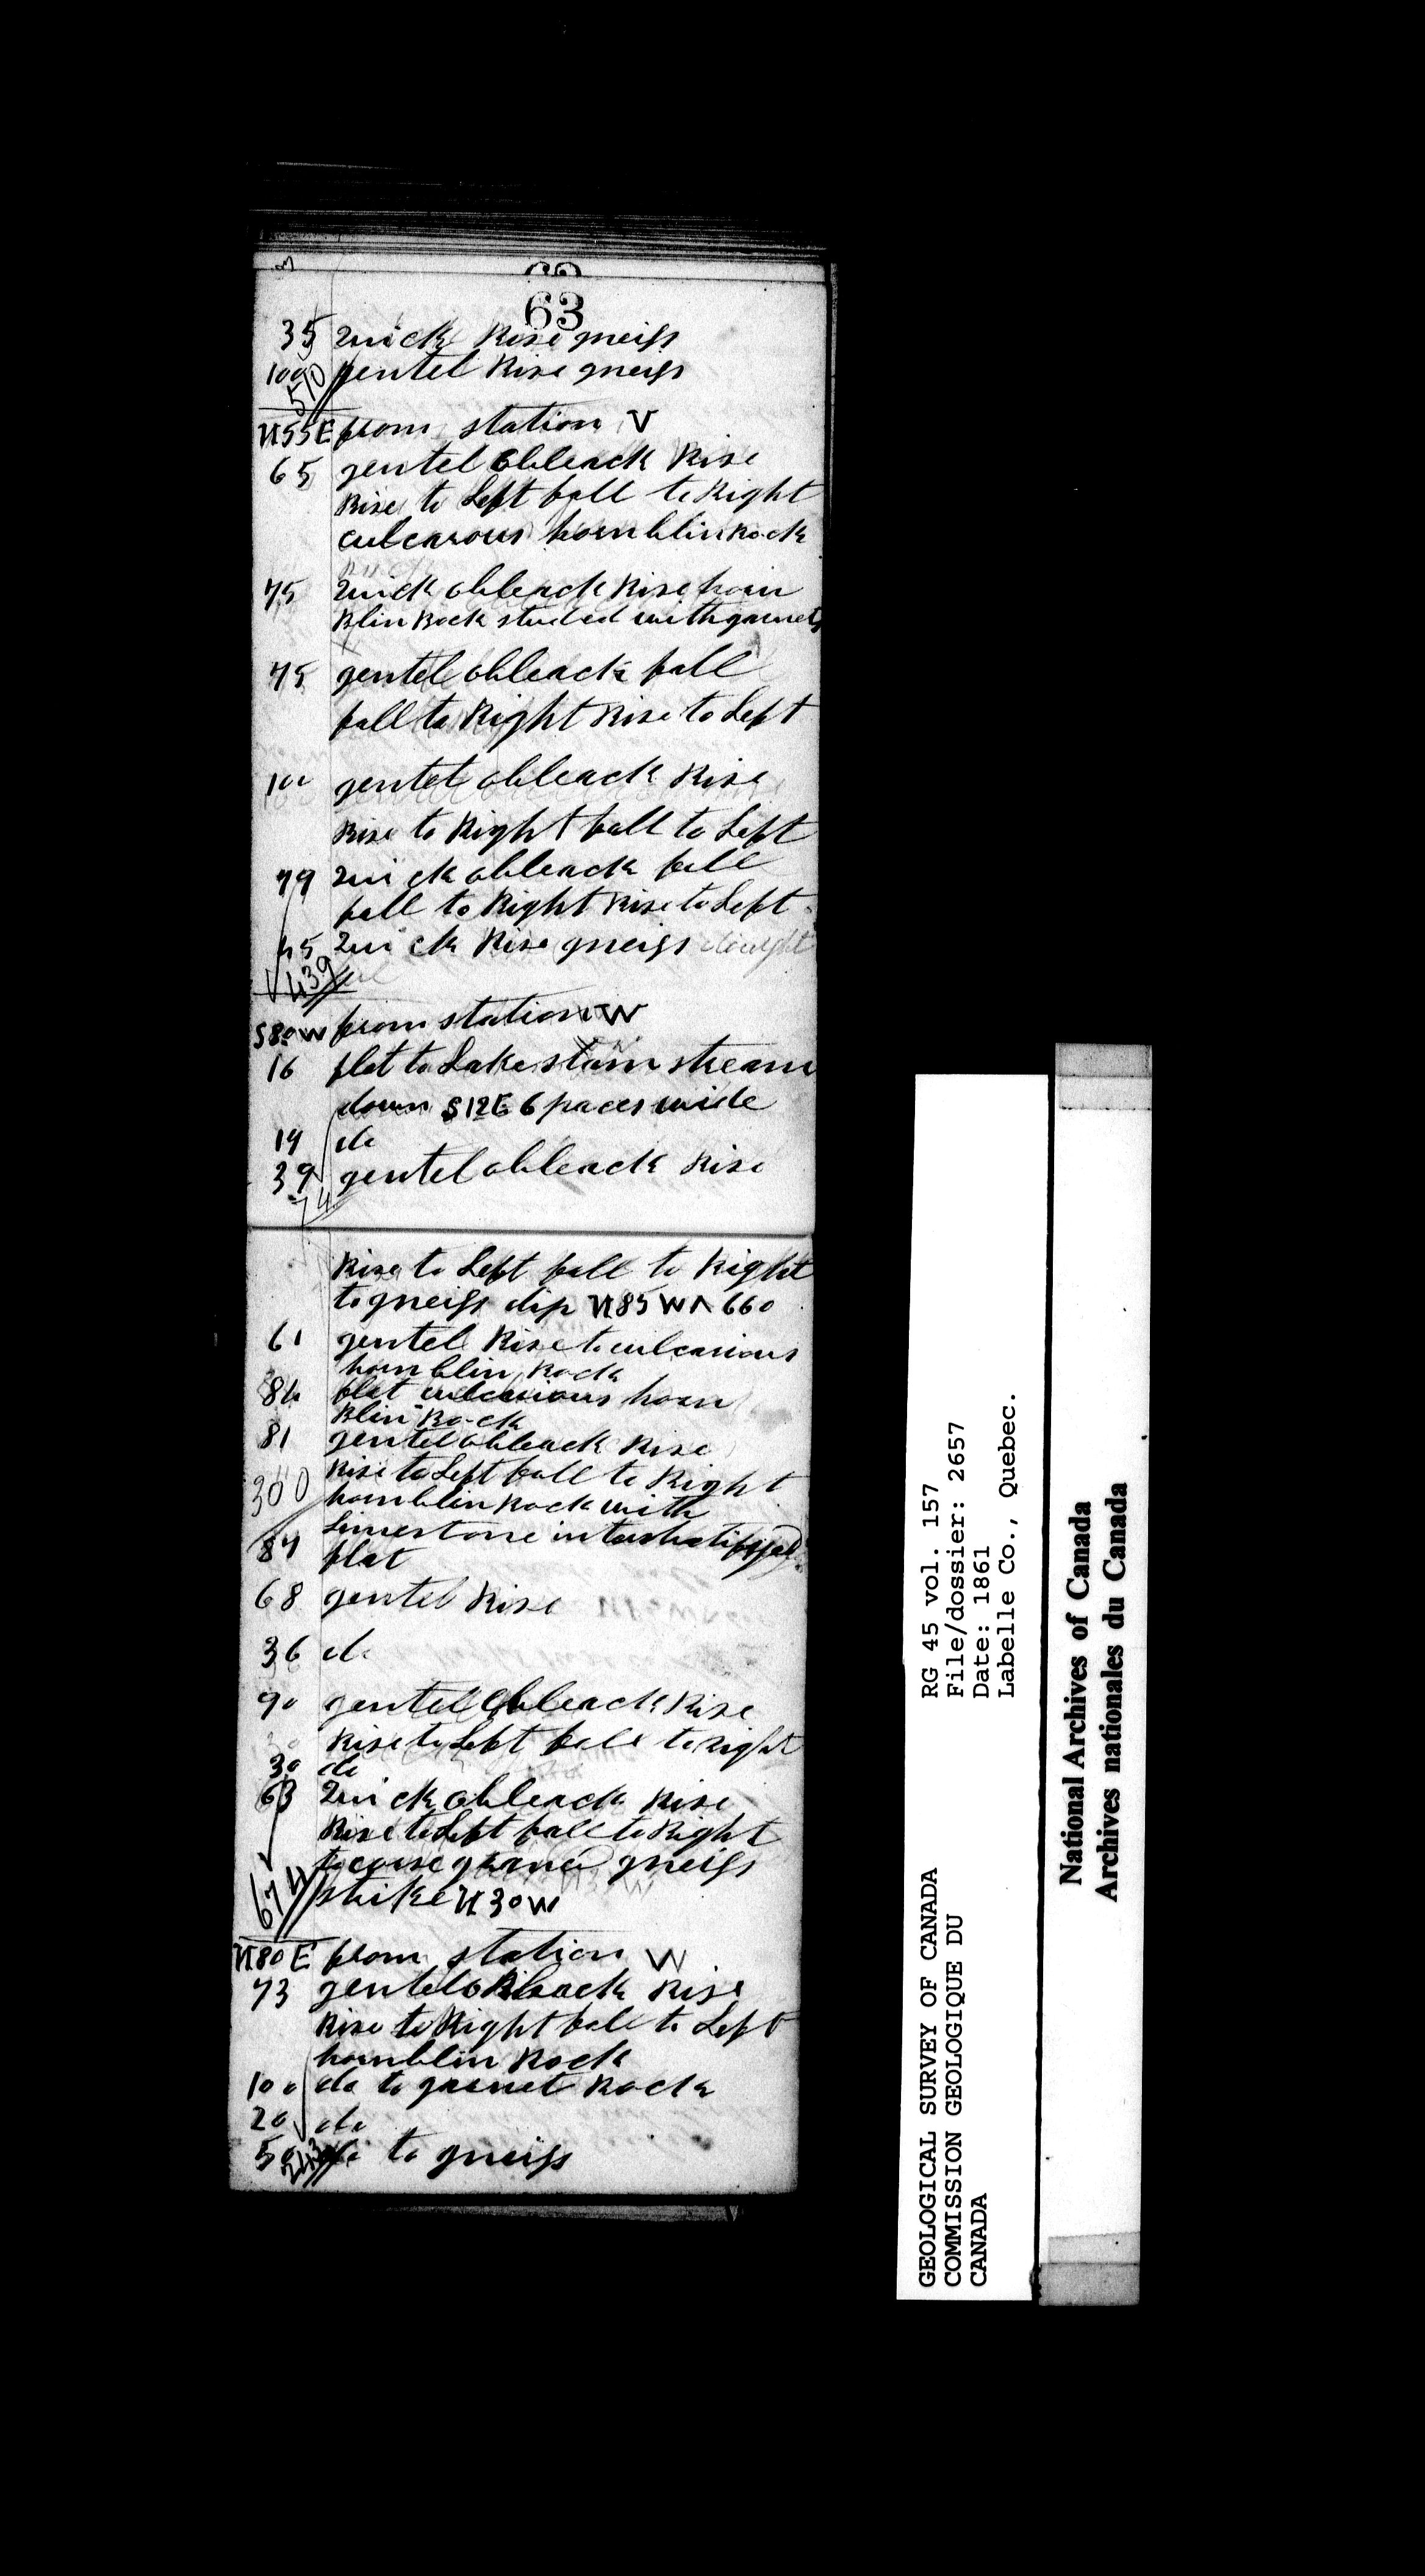 63
35 Quick Rise gneiss
100 gentel Rise gneiss
510
N55E from station V
65 gentel obleack Rise
Rise to Left fall to Right
culcarous hornblin Rock
75 Quick obleack Rise horn
Blin Rock studed with garnets
75 gentel obleack fall
fall to Right Rise to Left
100 gentel obleack Rise
Rise to Right fall to Left
79 Quick obleack fall
fall to Right Rise to Left
45 Quick Rise gneiss
439
S80W from station W
16 flat to Lake stream
down S12E 6 paces wide
19 do
39 gentel obleack Rise
74
Rise to Left fall to Right
to gneiss dip N85W Λ 660
61 gentel Rise to culcarious
hornblin Rock
84 flat culcarious horn
Blin Rock
81 gentel obleack Rise
Rise to Left fall to Right
300 hornblin Rock with
Limestone
87 flat
68 gentel Rise
36 do
90 gentel obleack Rise
Rise to Left fall to Right
30 do
63 Quick obleack Rise
Rise to Left fall to Right
to corse graned gneiss
674 strike N30W
N80E from station W
73 gentel obleack Rise
Rise to Right fall to Left
hornblin Rock
100 do to garnet Rock
20 do
50 do to gneiss
243
GEOLOGICAL SURVEY OF CANADA RG 45 vol. 157
COMMISSION GEOLOGIQUE DU File/dossier: 2657
CANADA Date: 1861
Labelle Co., Quebec.
National Archives of Canada
Archives nationales du Canada